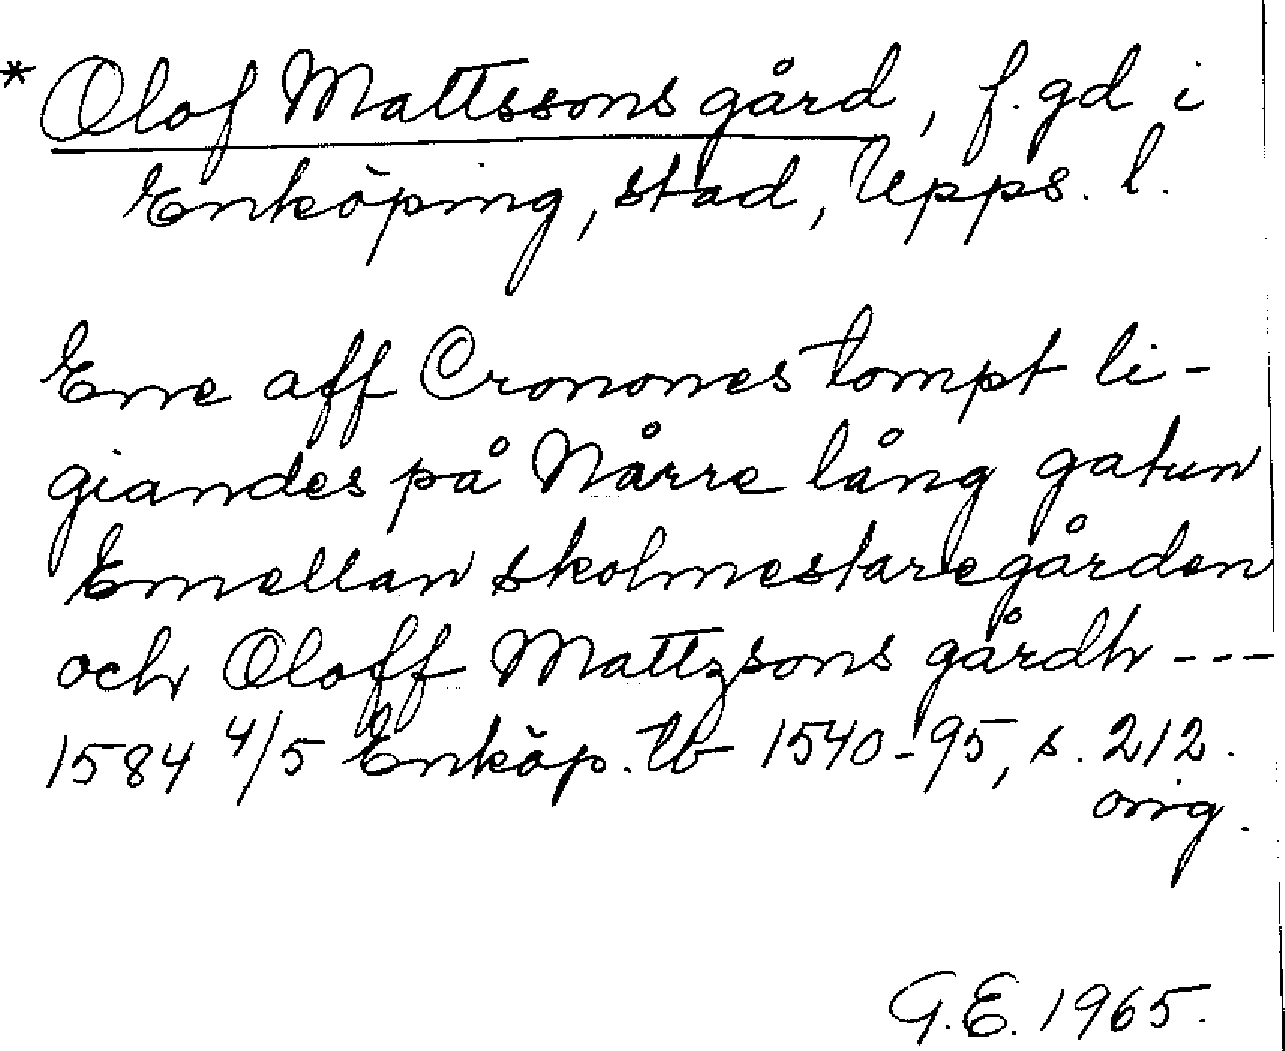 * Olof Mattssons gård, f. gd i
Enköping, stad, Upps. l.
Ene aff Cronones tompt li-
giandes på Nårre lång gatun
Emellan skolmestaregården
och Oloff Mattzsons gårdh ---
1584 4/5 Enköp. tb 1540-95, s. 212.
orig.
G.E. 1965.